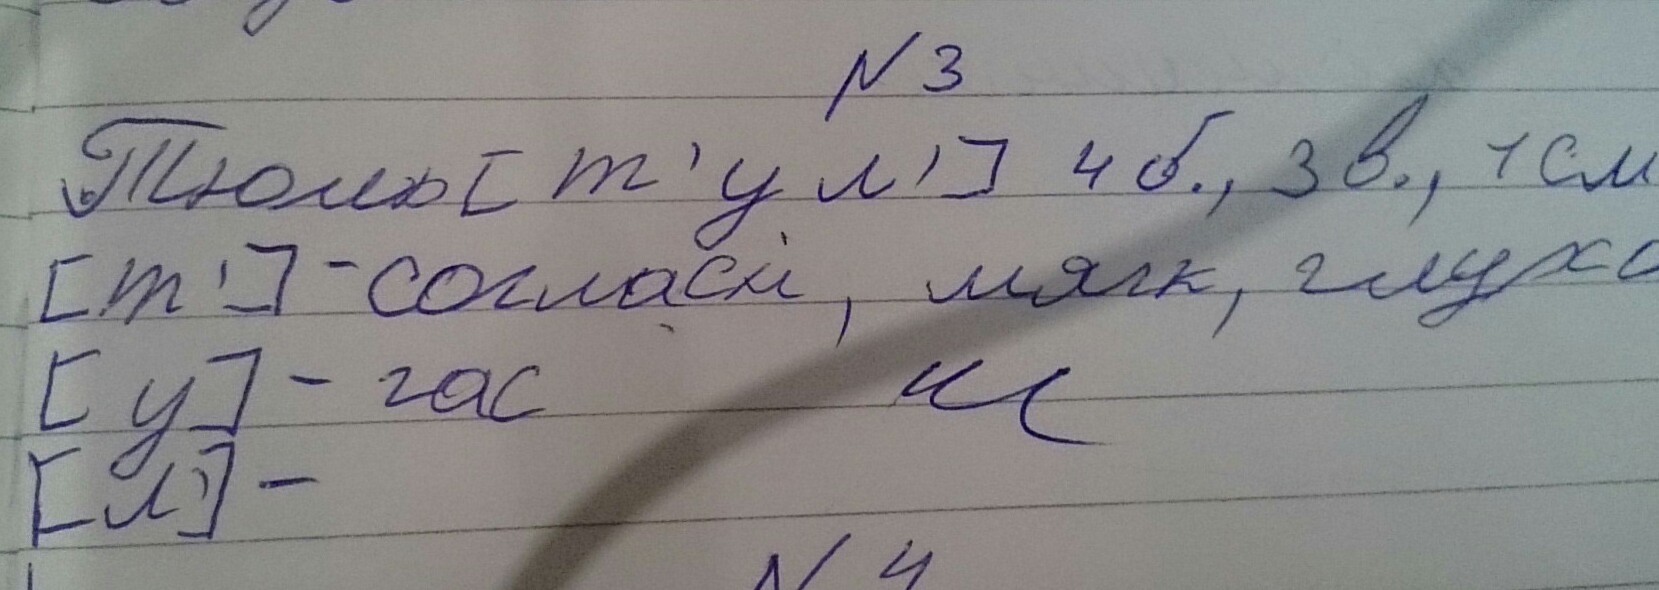 N 3
Тюль [т' у л'] 4 б., 3 в., 1 сл
[т'] - согласн, мягк, глухо
[у] - гас
[л'] -
N 4